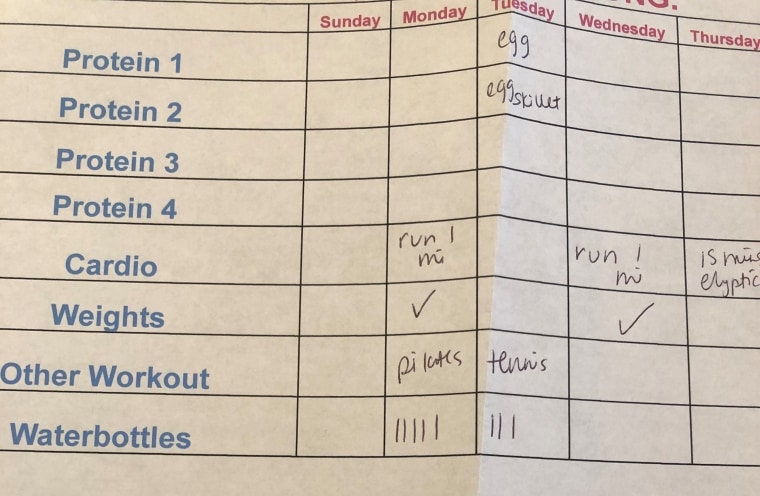 ONG.
Sunday Monday Tuesday Wednesday Thursday
Protein 1 egg
Protein 2 egg skillet
Protein 3
Protein 4
Cardio run 1 mi run 1 mi 15 elyptic
Weights ✓ ✓
Other Workout pilates tennis
Waterbottles ||||| |||